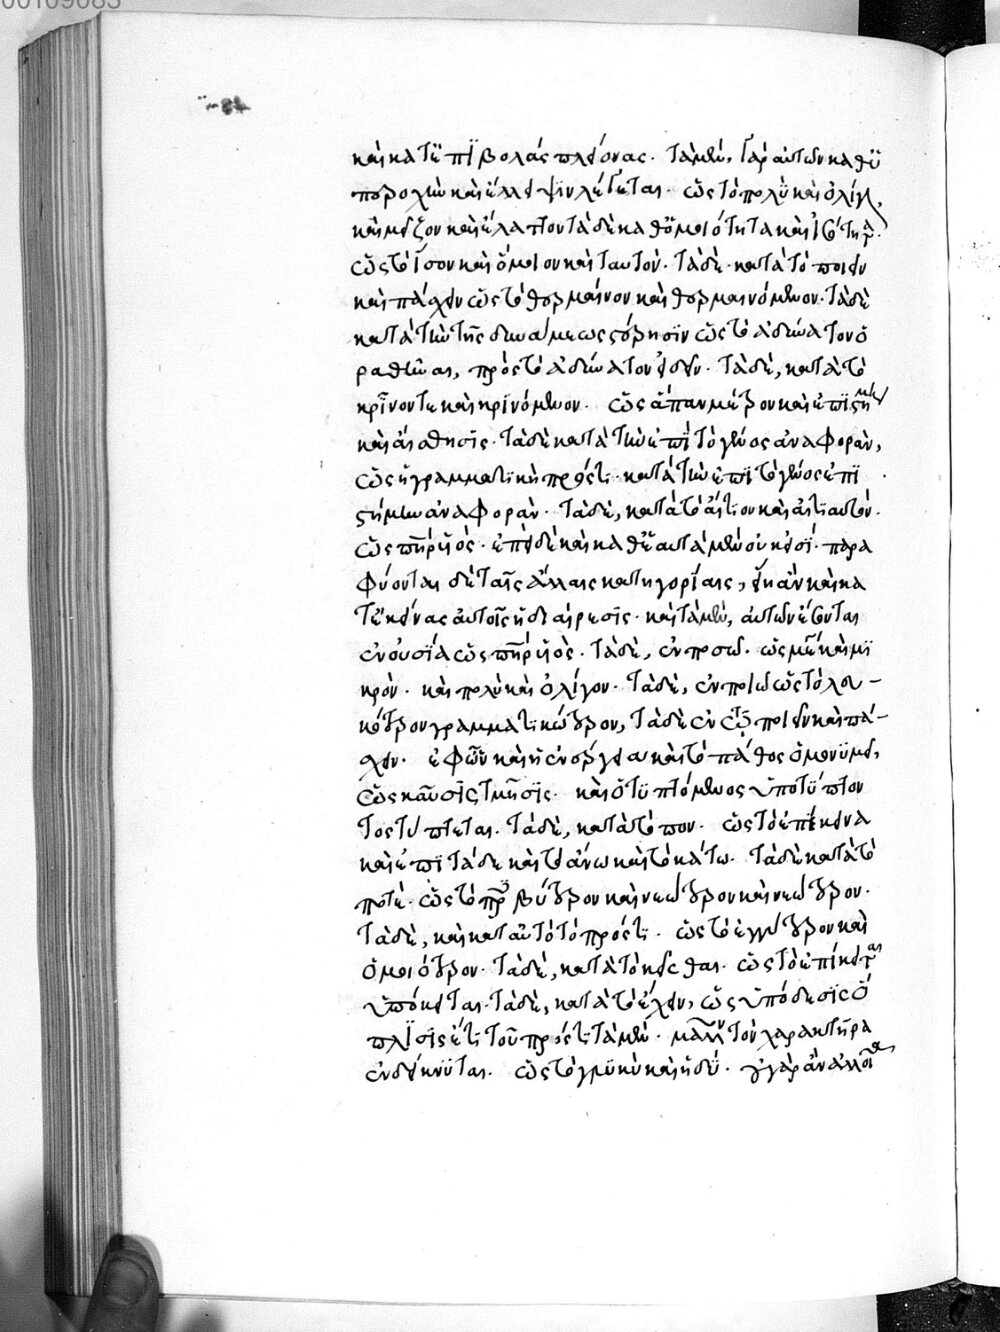 00109083
καὶ κατ' ἐπιβολὰς πλείονας. τὰ μὲν, γὰρ αὐτῶν καθ' ὑ
περοχὴν καὶ ἔλλειψιν λέγεται. ὡς τὸ πολὺ καὶ ὀλίγον,
καὶ μεῖζον καὶ ἔλαττον τὰ δὲ καθ' ὁμοιότητα καὶ ἰσότητα.
ὡς τὸ ἴσον καὶ ὅμοιον καὶ ταυτόν. τὰ δὲ κατὰ τὸ ποιεῖν
καὶ πάσχειν ὡς τὸ θερμαῖνον καὶ θερμαινόμενον. τὰ δὲ
κατὰ τὴν τῆς δυνάμεως στέρησιν ὡς τὸ ἀδύνατον ὁ
ραθῆναι, πρὸς τὸ ἀδύνατον ἰδεῖν. τὰ δὲ, κατὰ τὸ
κρῖνον τε καὶ κρινόμενον. ὡς ἅπαν μέτρον καὶ ἐπιστήμη
καὶ αἴσθησις. τὰ δὲ κατὰ τὴν ἐπὶ τὸ γένος ἀναφορὰν,
ὡς ἡ γραμματικὴ πρός τι. κατὰ τὴν ἐπὶ τὸ γένος ἐπι
στήμην ἀναφοράν. τὰ δὲ, κατὰ τὸ αἴτιον καὶ αἰτιατόν.
ὡς πατὴρ υἱός. ἐπεὶ δὲ καὶ καθ' ἑαυτὰ μὲν οὐκ εἰσί. παρα
φύονται δὲ ταῖς ἄλλαις κατηγορίαις, εἴη ἂν καὶ κα
τ' ἐκείνας αὐτοῖς ἡ διαίρεσις. καὶ τὰ μὲν, αὐτῶν ἔσονται
ἐν οὐσίᾳ ὡς πατὴρ υἱός. τὰ δὲ, ἐν ποσῷ. ὡς μέγα καὶ μι
κρόν. καὶ πολὺ καὶ ὀλίγον. τὰ δὲ, ἐν ποιῷ ὡς τὸ λευ-
κότερον γραμματικώτερον, τὰ δὲ ἐν τῷ ποιεῖν καὶ πά-
σχειν. ἐφ' ὧν καὶ ἡ ἐνέργεια καὶ τὸ πάθος ὁμωνυμεῖ,
ὡς καῦσις τμῆσις. καὶ ὁ τυπτόμενος ὑπὸ τύπτον
τος τύπτεται. τὰ δὲ, κατὰ τὸ που. ὡς τὸ ἐπέκεινα
καὶ ἐπὶ τάδε καὶ τὸ ἄνω καὶ τὸ κάτω. τὰ δὲ κατὰ τὸ
ποτέ. ὡς τὸ πρεσβύτερον καὶ νεώτερον καὶ νεώτερον.
τὰ δὲ, καὶ κατ' αὐτὸ τὸ πρός τι. ὡς τὸ ἐγγύτερον καὶ
ὁμοιότερον. τὰ δὲ, κατὰ τὸ κεῖσθαι. ὡς τὸ ἐπίκειται
ὑπόκειται. τὰ δὲ, κατὰ τὸ ἔχειν, ὡς ὑπόδεσις ὅ
πλισις ἔτι τοῦ πρός τι τὰ μὲν. μᾶλλον τὸν χαρακτῆρα
ἐνδείκνυται. ὡς τὸ γλυκὺ καὶ ἡδύ. οὐ γὰρ ἂν ἀλλοῖα